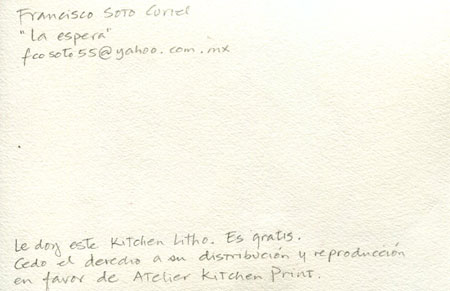 Francisco Soto Curiel
"La espera"
fcosoto55@yahoo.com.mx
Le doy este Kitchen Litho. Es gratis.
Cedo el derecho a su distribución y reproducción
en favor de Atelier Kitchen Print.